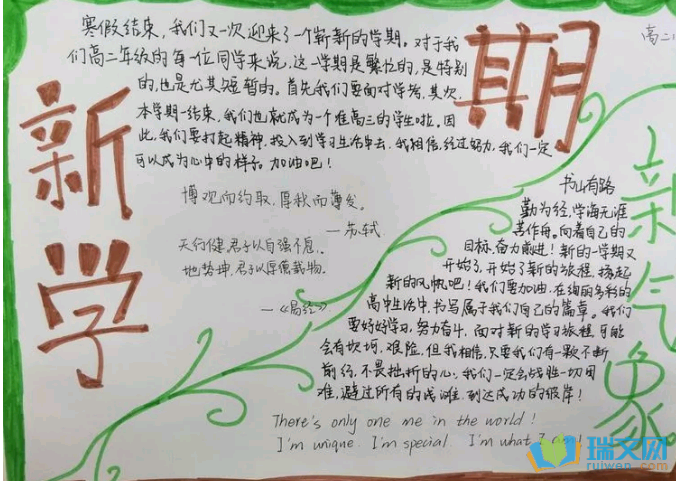 新学
期
新气象
高二
寒假结束,我们又一次迎来了一个崭新的学期。对于我
们高二年级的每一位同学来说,这一学期是繁忙的,是特别
的,也是尤其短暂的。首先我们要面对学考,其次,
本学期一结束,我们也就成为一个准高三的学生啦。因
此,我们要打起精神,投入到学习生活中去,我相信,经过努力,我们一定
可以成为心中的样子。加油吧!
博观而约取,厚积而薄发。
—苏轼
天行健,君子以自强不息。
地势坤,君子以厚德载物。
—《易经》
书山有路
勤为径,学海无涯
苦作舟。向着自己的
目标,奋力前进!新的一学期又
开始了,开始了新的旅程,扬起
新的风帆吧!我们要加油,在绚丽多彩的
高中生活中,书写属于我们自己的篇章。我们
要好好学习,努力奋斗,面对新的学习旅程,可能
会有坎坷,艰险,但我相信,只要我们有一颗不断
前行,不畏挫折的心,我们一定会战胜一切困
难,避过所有的浅滩,到达成功的彼岸!
There's only one me in the world!
I'm unique. I'm special. I'm what I am!
瑞文网
ruiwen.com